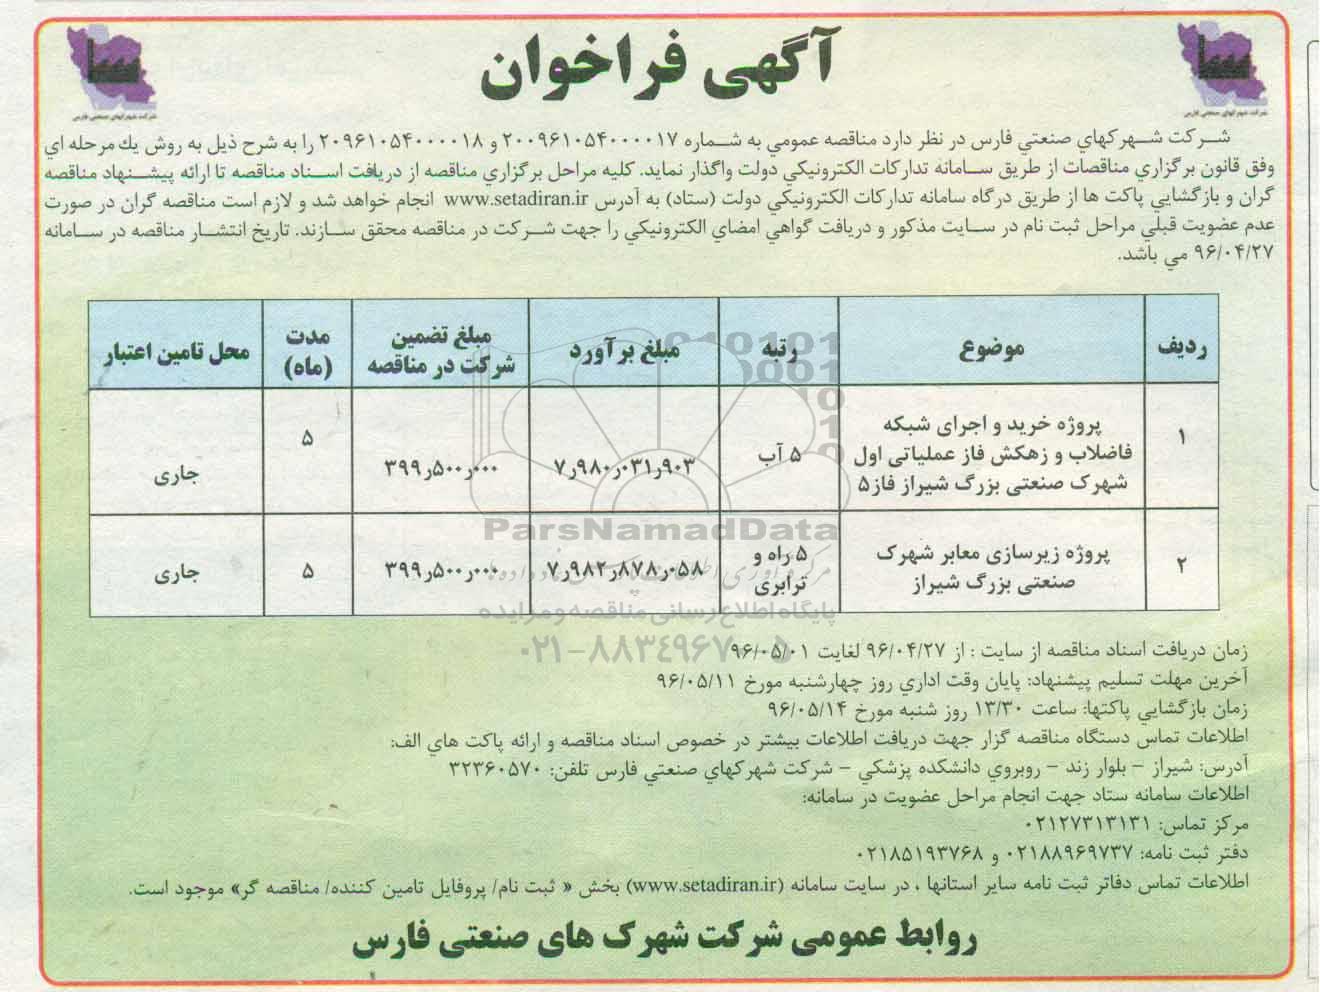 آگهی فراخوان
شرکت شهرکهای صنعتی فارس
شرکت شهرکهای صنعتی فارس
شرکت شهرکهاي صنعتي فارس در نظر دارد مناقصه عمومي به شماره ۲۰۰۹۶۱۰۵۴۰۰۰۰۱۷ و ۲۰۹۶۱۰۵۴۰۰۰۰۱۸ را به شرح ذيل به روش يك مرحله اي
وفق قانون برگزاري مناقصات از طريق سامانه تداركات الكترونيكي دولت واگذار نمايد. كليه مراحل برگزاري مناقصه از دريافت اسناد مناقصه تا ارائه پيشنهاد مناقصه
گران و بازگشايي پاكت ها از طريق درگاه سامانه تداركات الكترونيكي دولت (ستاد) به آدرس www.setadiran.ir انجام خواهد شد و لازم است مناقصه گران در صورت
عدم عضويت قبلي مراحل ثبت نام در سايت مذكور و دريافت گواهي امضاي الكترونيكي را جهت شركت در مناقصه محقق سازند. تاريخ انتشار مناقصه در سامانه
۹۶/۰۴/۲۷ مي باشد.
ردیف موضوع رتبه مبلغ برآورد مبلغ تضمین شرکت در مناقصه مدت (ماه) محل تامین اعتبار
۱ پروژه خرید و اجرای شبکه فاضلاب و زهکش فاز عملیاتی اول شهرک صنعتی بزرگ شیراز فاز۵ ۵ آب ۷٫۹۸۰٫۰۳۱٫۹۰۳ ۳۹۹٫۵۰۰٫۰۰۰ ۵ جاری
۲ پروژه زیرسازی معابر شهرک صنعتی بزرگ شیراز ۵ راه و ترابری ۷٫۹۸۲٫۸۷۸٫۰۵۸ ۳۹۹٫۵۰۰٫۰۰۰ ۵ جاری
ParsNamadData
پایگاه اطلاع رسانی مناقصه و مزایده
۰۲۱-۸۸۳۴۹۶۷۰-۵
زمان دريافت اسناد مناقصه از سايت : از ۹۶/۰۴/۲۷ لغايت ۹۶/۰۵/۰۱
آخرين مهلت تسليم پيشنهاد: پايان وقت اداري روز چهارشنبه مورخ ۹۶/۰۵/۱۱
زمان بازگشايي پاكتها: ساعت ۱۳/۳۰ روز شنبه مورخ ۹۶/۰۵/۱۴
اطلاعات تماس دستگاه مناقصه گزار جهت دريافت اطلاعات بيشتر در خصوص اسناد مناقصه و ارائه پاكت هاي الف:
آدرس: شيراز – بلوار زند – روبروي دانشكده پزشكي – شركت شهركهاي صنعتي فارس تلفن: ۳۲۳۶۰۵۷۰
اطلاعات سامانه ستاد جهت انجام مراحل عضويت در سامانه:
مركز تماس: ۰۲۱۲۷۳۱۳۱۳۱
دفتر ثبت نامه: ۰۲۱۸۸۹۶۹۷۳۷ و ۰۲۱۸۵۱۹۳۷۶۸
اطلاعات تماس دفاتر ثبت نامه ساير استانها ، در سايت سامانه (www.setadiran.ir) بخش « ثبت نام/ پروفايل تامين كننده/ مناقصه گر» موجود است.
روابط عمومی شرکت شهرک های صنعتی فارس